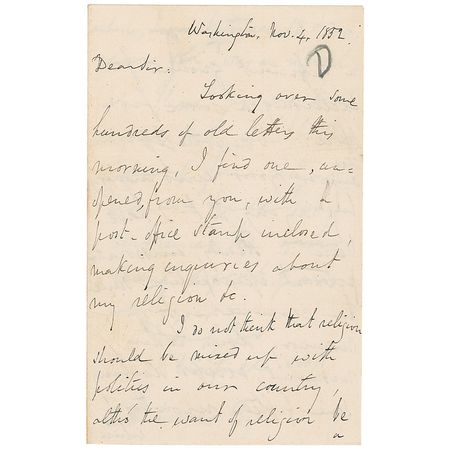 Washington, Nov. 4, 1852.
D
Dear Sir:
Looking over some
hundreds of old letters this
morning, I find one, un=
opened, from you, with a
post-office stamp inclosed,
making inquiries about
my religion &c.
I do not think that religion
should be mixed up with
politics in our country,
altho' the want of religion be
a